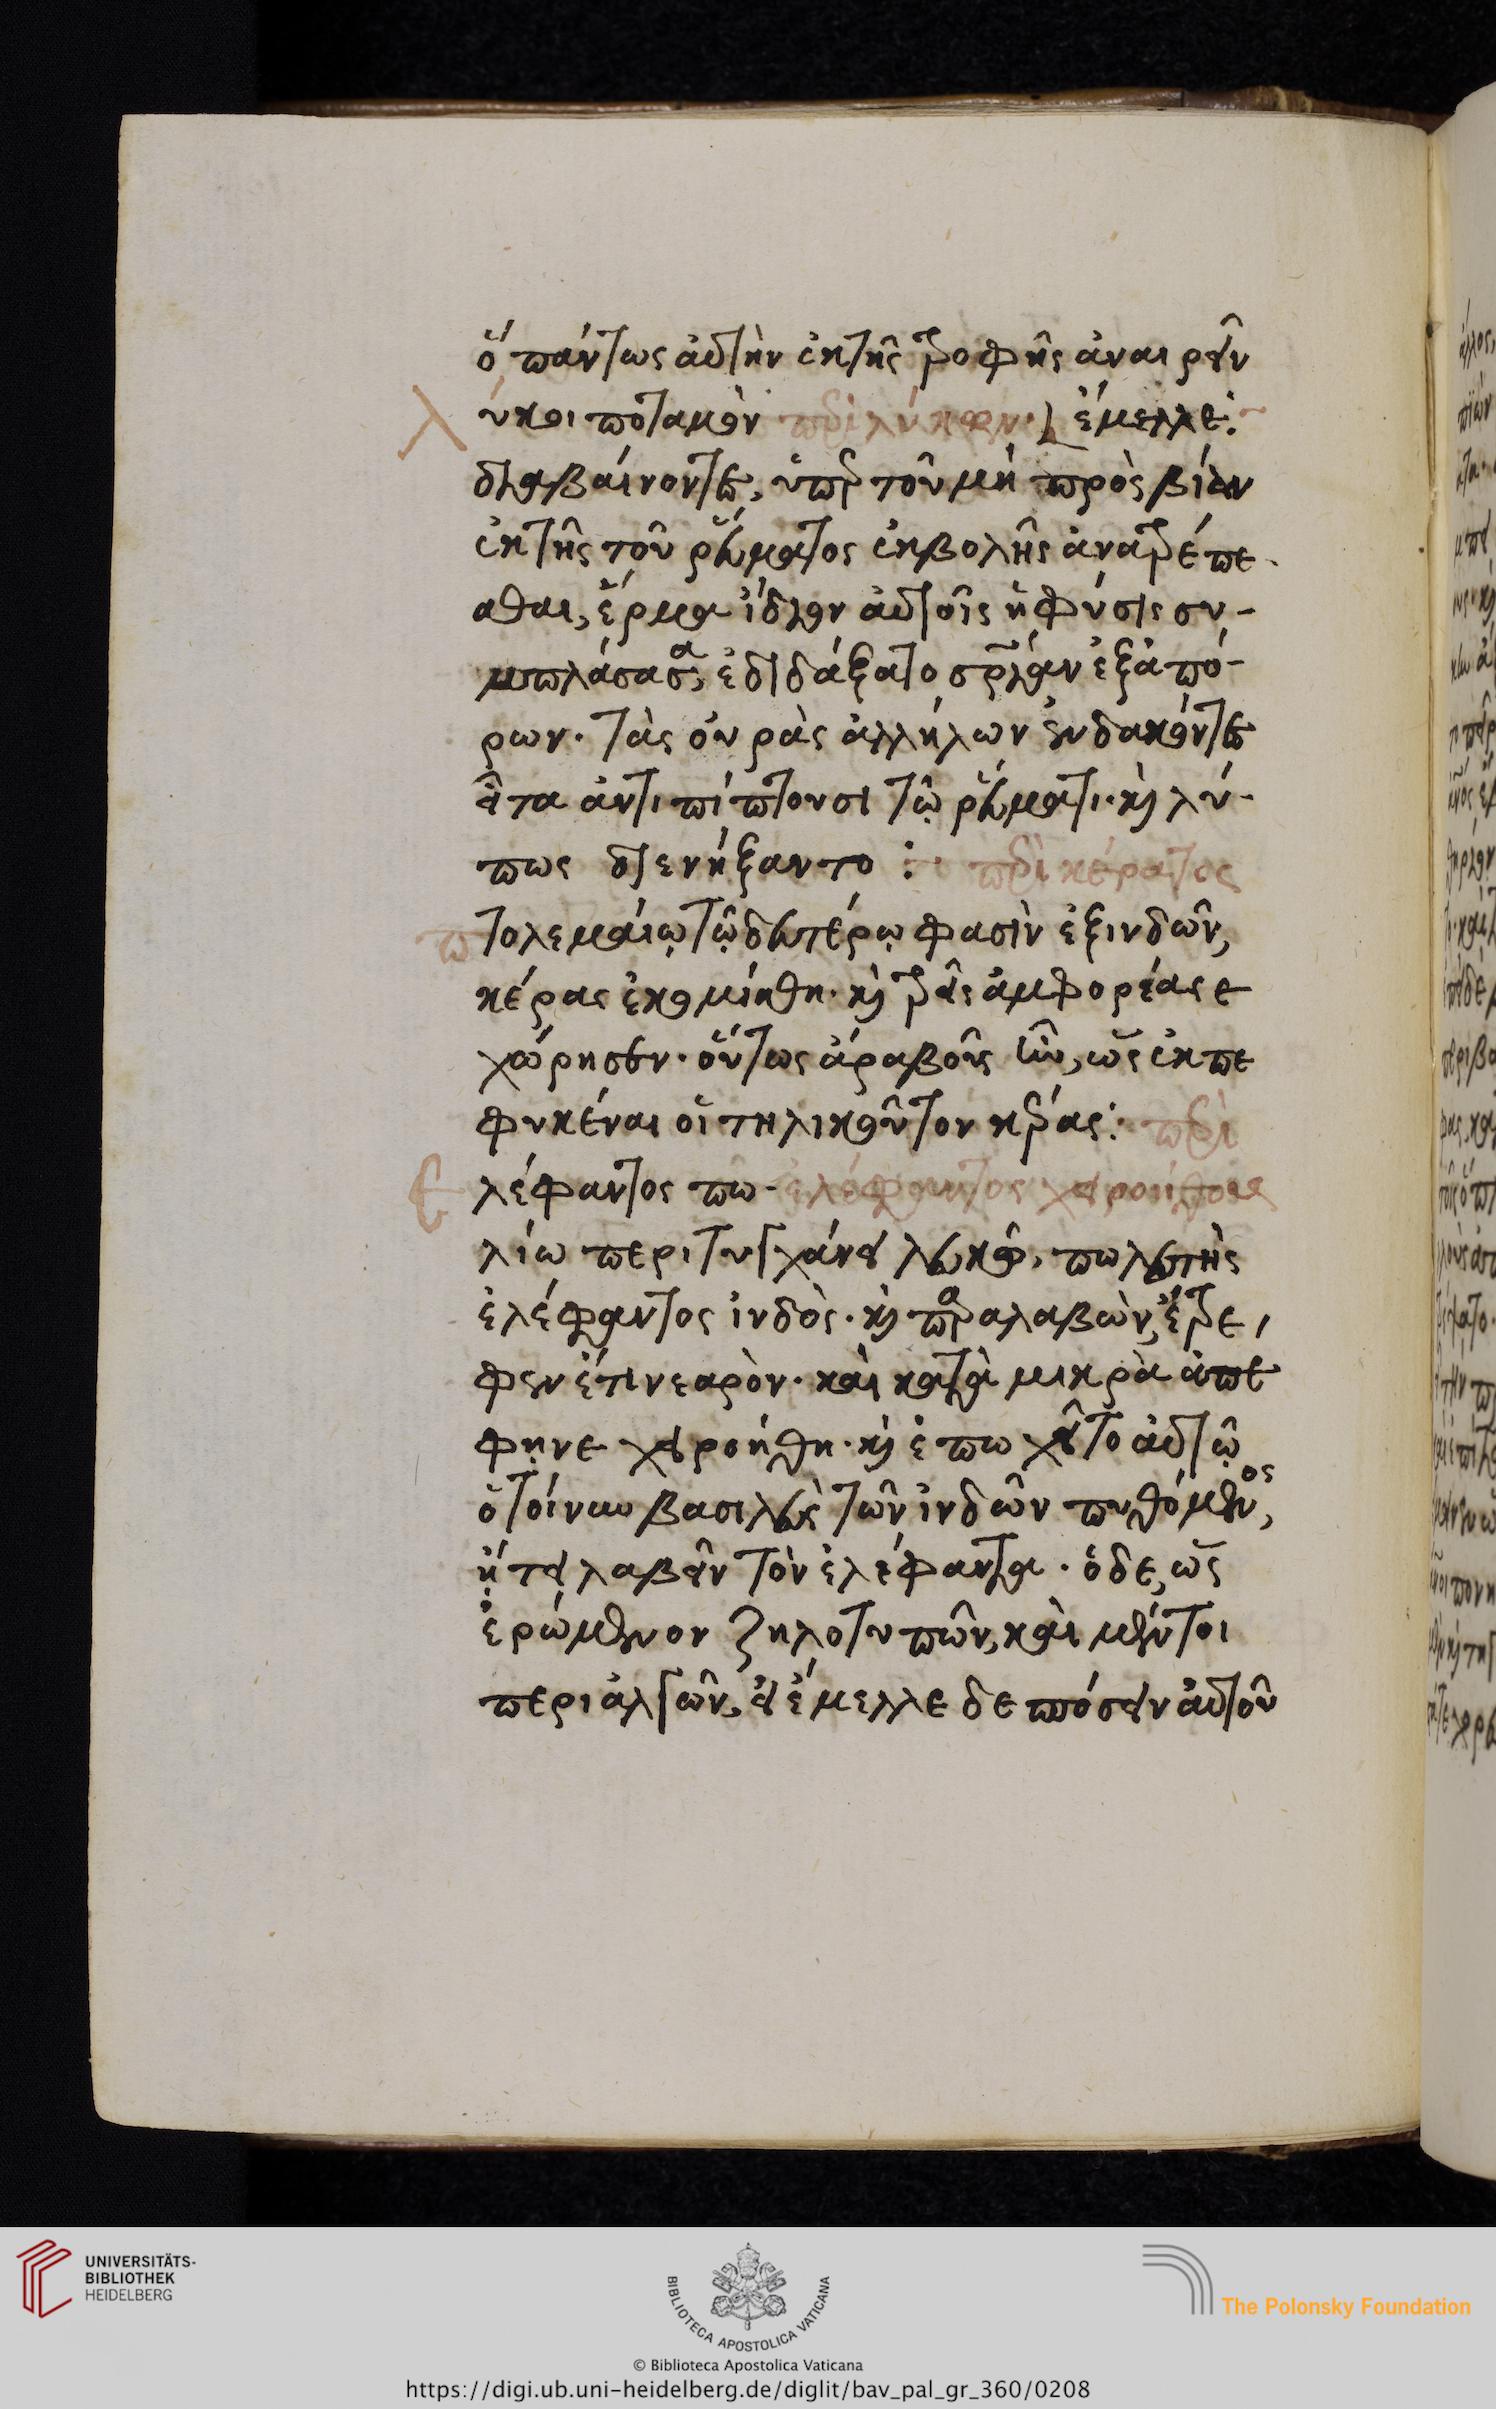 ὅ πάντως αὐτὴν ἐκ τῆς τροφῆς ἀναιρεῖν
λύκοι ποταμὸν περὶ λύκων ἔμελλε:
διαβαίνοντες, ὑπὲρ τοῦ μὴ πρὸς βίαν
ἐκ τῆς τοῦ ῥεύματος ἐκβολῆς ἀνατρέπε
σθαι, ἕρμα ἴδιον αὐτοῖς ἡ φύσις συ-
μπλάσασα, ἐδιδάξατο σωτηρίαν ἐξ ἀπό-
ρων. τὰς οὐρὰς ἀλλήλων ἐνδακόντες
εἶτα ἀντιπίπτουσι τῷ ῥεύματι. καὶ λύ-
πως διενήξαντο : περὶ κέρατος
πτολεμαίῳ τῷ δευτέρῳ φασὶν ἐξ ινδῶν,
κέρας ἐκομίσθη. καὶ τρεῖς ἀμφορέας ε
χώρησεν. οὕτως ἄρα βοῦς ἦν, ὡς ἐκπε
φυκέναι οἱ τηλικοῦτον κέρας: περὶ
ελέφαντος πω- ἐλέφαντος χειροήθους
λίω περιτυγχάνει λευκῷ, πωλευτὴς
ἐλέφαντος ἰνδὸς. καὶ παραλαβὼν, ἔτρε,
φεν ἔτι νεαρὸν. καὶ κατὰ μικρὰ ἀπέ
φηνε χειροήθη. καὶ ἐπωχεῖτο αὐτῷ
ὁ τοίνυν βασιλεὺς τῶν ἰνδῶν πυθόμενος,
ᾔτει λαβεῖν τὸν ἐλέφαντα. ὁ δε, ὡς
ἐρώμενον ζηλοτυπῶν, καὶ μέντοι
περιαλγῶν, εἰ ἔμελλε δεσπόσειν αὐτοῦ
UNIVERSITÄTS-
BIBLIOTHEK
HEIDELBERG
BIBLIOTECA APOSTOLICA VATICANA
The Polonsky Foundation
© Biblioteca Apostolica Vaticana
https://digi.ub.uni-heidelberg.de/diglit/bav_pal_gr_360/0208